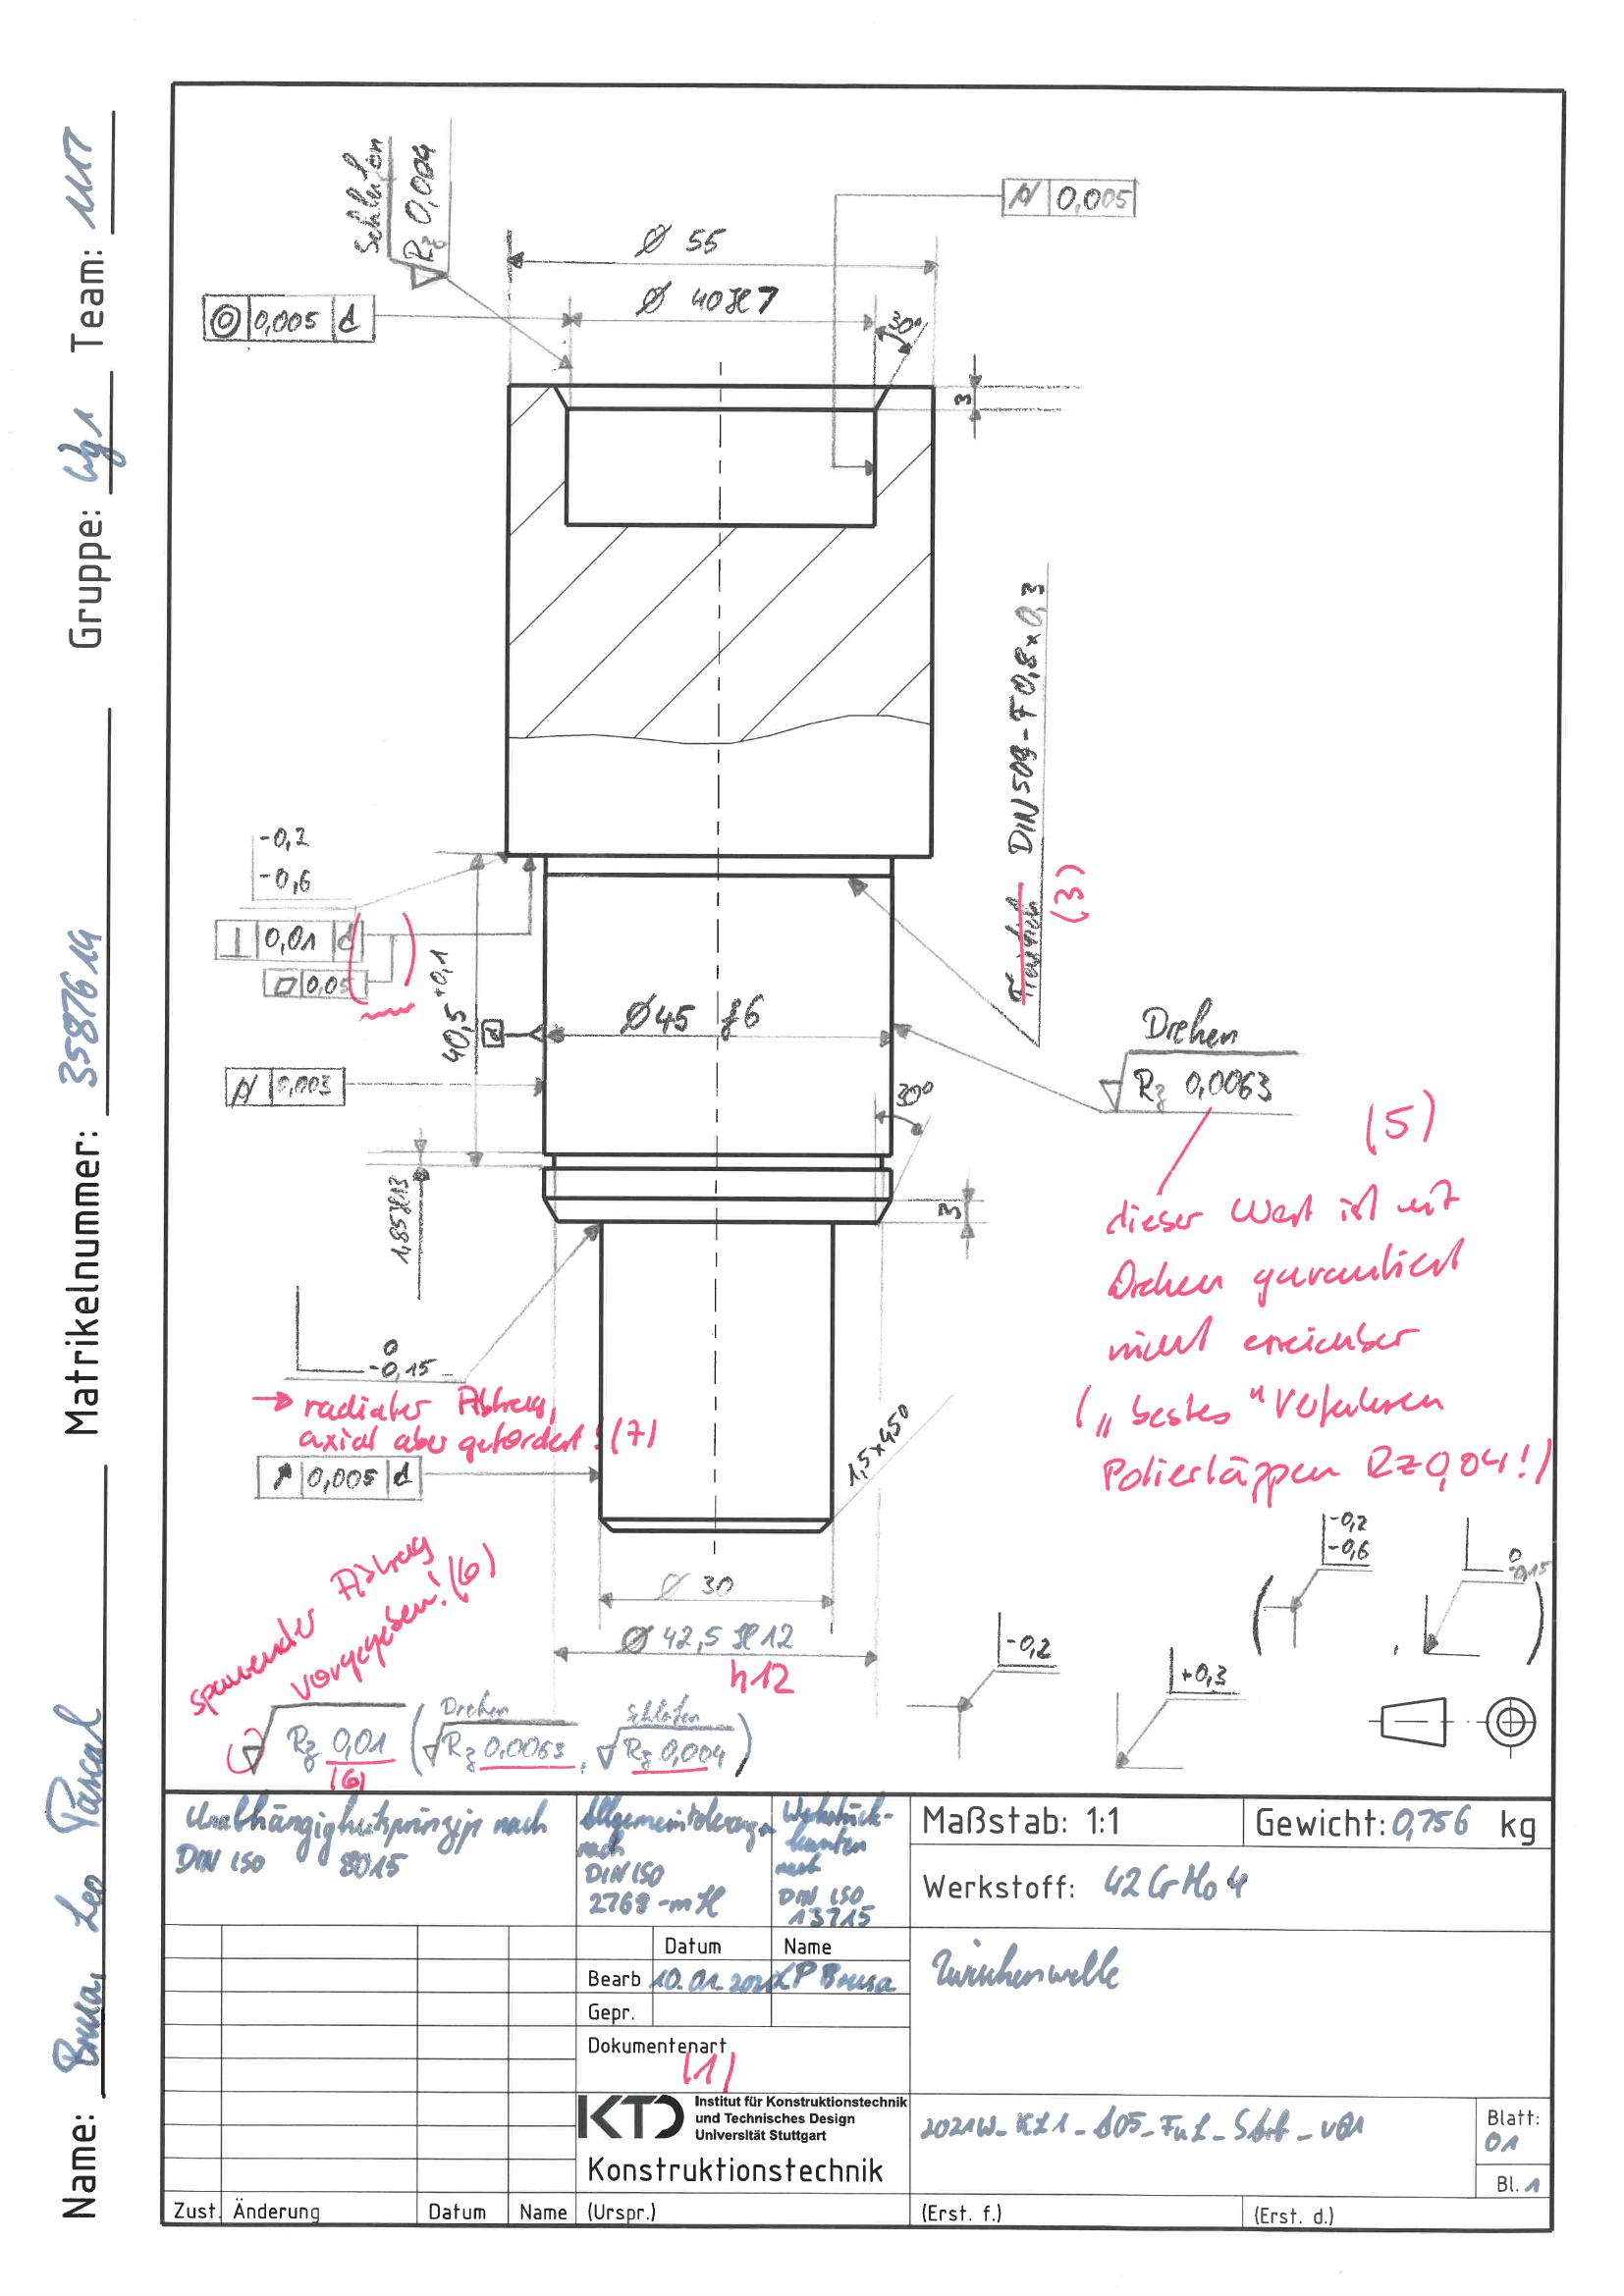 Name: Brusa, Leo Pascal
Matrikelnummer: 3587619
Gruppe: Wg1
Team: 1117
Schleifen
Rz 0,004
0,005
Ø 55
0,005 d
Ø 40H7
30°
3
DIN 509 - F 0,8 x 0,3
(3)
-0,2
-0,6
0,01 d
0,05
40,5 +0,1
d
Ø45 f6
0,003
Drehen
Rz 0,0063
30°
(5)
dieser Wert ist mit
Drehen garantiert
nicht erreichbar
("bestes" Verfahren
Polierläppen Rz 0,04!)
1,85H13
3
0
-0,15
→ radialer Abtrag,
axial aber gefordert! (7)
0,005 d
1,5x45°
Ø 30
Ø 42,5 H12
h12
spanender Abtrag
vorgegeben! (6)
Rz 0,01 ( Drehen Rz 0,0063, Schleifen Rz 0,004 )
(6)
-0,2
+0,3
( -0,2
-0,6 , 0
-0,15 )
Unabhängigkeitsprinzip nach
DIN ISO 8015
Allgemeintoleranzen
nach
DIN ISO
2768-mH
Werkstück-
kanten
nach
DIN ISO
13715
Maßstab: 1:1
Gewicht: 0,756 kg
Werkstoff: 42CrMo4
Datum Name
Bearb 10.01. LP Brusa
Gepr.
Zwischenwelle
Dokumentenart
(1)
KTD Institut für Konstruktionstechnik
und Technisches Design
Universität Stuttgart
Konstruktionstechnik
Blatt:
01
Bl. 1
Zust. Änderung Datum Name (Urspr.) (Erst. f.) (Erst. d.)